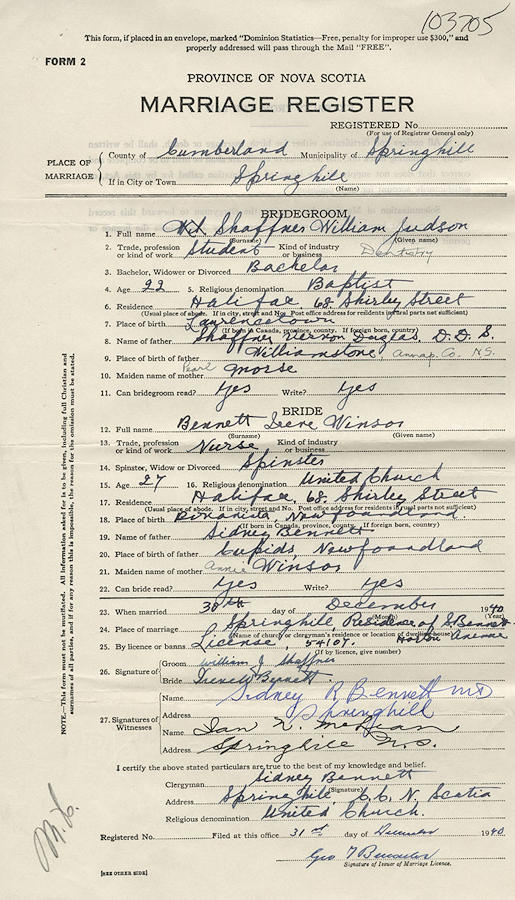 103705
This form, if placed in an envelope, marked "Dominion Statistics—Free, penalty for improper use $300," and
properly addressed will pass through the Mail "FREE".
FORM 2
PROVINCE OF NOVA SCOTIA
MARRIAGE REGISTER
REGISTERED No.
(For use of Registrar General only)
PLACE OF MARRIAGE
County of Cumberland Municipality of Springhill
If in City or Town Springhill
(Name)
BRIDEGROOM
1. Full name Shaffner William Judson
(Surname) (Given name)
2. Trade, profession or kind of work Student Kind of industry or business Dentistry
3. Bachelor, Widower or Divorced Bachelor
4. Age 22 5. Religious denomination Baptist
6. Residence Halifax, 68 Shirley Street
(Usual place of abode. If in city, street and No. Post office address for residents in rural parts not sufficient)
7. Place of birth Lawrencetown
(If born in Canada, province, county. If foreign born, country)
8. Name of father Shaffner Vernon Douglas, D.D.S.
9. Place of birth of father Williamstone, Annap. Co. N.S.
10. Maiden name of mother Pearl Morse
11. Can bridegroom read? Yes Write? Yes
BRIDE
12. Full name Bennett Irene Winsor
(Surname) (Given name)
13. Trade, profession or kind of work Nurse Kind of industry or business
14. Spinster, Widow or Divorced Spinster
15. Age 27 16. Religious denomination United Church
17. Residence Halifax, 68 Shirley Street
(Usual place of abode. If in city, street and No. Post office address for residents in rural parts not sufficient)
18. Place of birth Newfoundland
(If born in Canada, province, county. If foreign born, country)
19. Name of father Sidney Bennett
20. Place of birth of father Cupids, Newfoundland
21. Maiden name of mother Annie Winsor
22. Can bride read? Yes Write? Yes
23. When married 30th day of December 1940
(Year)
24. Place of marriage Springhill Residence of S. Bennett
(Name of church or clergyman's residence or location of dwelling house)
Avenue
25. By licence or banns License, 54107.
(If by licence, give number)
26. Signature of
Groom William J Shaffner
Bride Irene Bennett
27. Signatures of Witnesses
Name Sidney R Bennett MD
Address Springhill
Name Ian
Address Springhill N.S.
I certify the above stated particulars are true to the best of my knowledge and belief.
Clergyman Sidney Bennett
(Signature)
Address Springhill, N. Scotia
Religious denomination United Church.
Registered No. Filed at this office 31st day of December 1940
Geo T
Signature of Issuer of Marriage Licence.
[SEE OTHER SIDE]
NOTE.—This form must not be mutilated. All information asked for is to be given, including full Christian and
surnames of all parties, and if for any reason this is impossible, the reason for the omission must be stated.